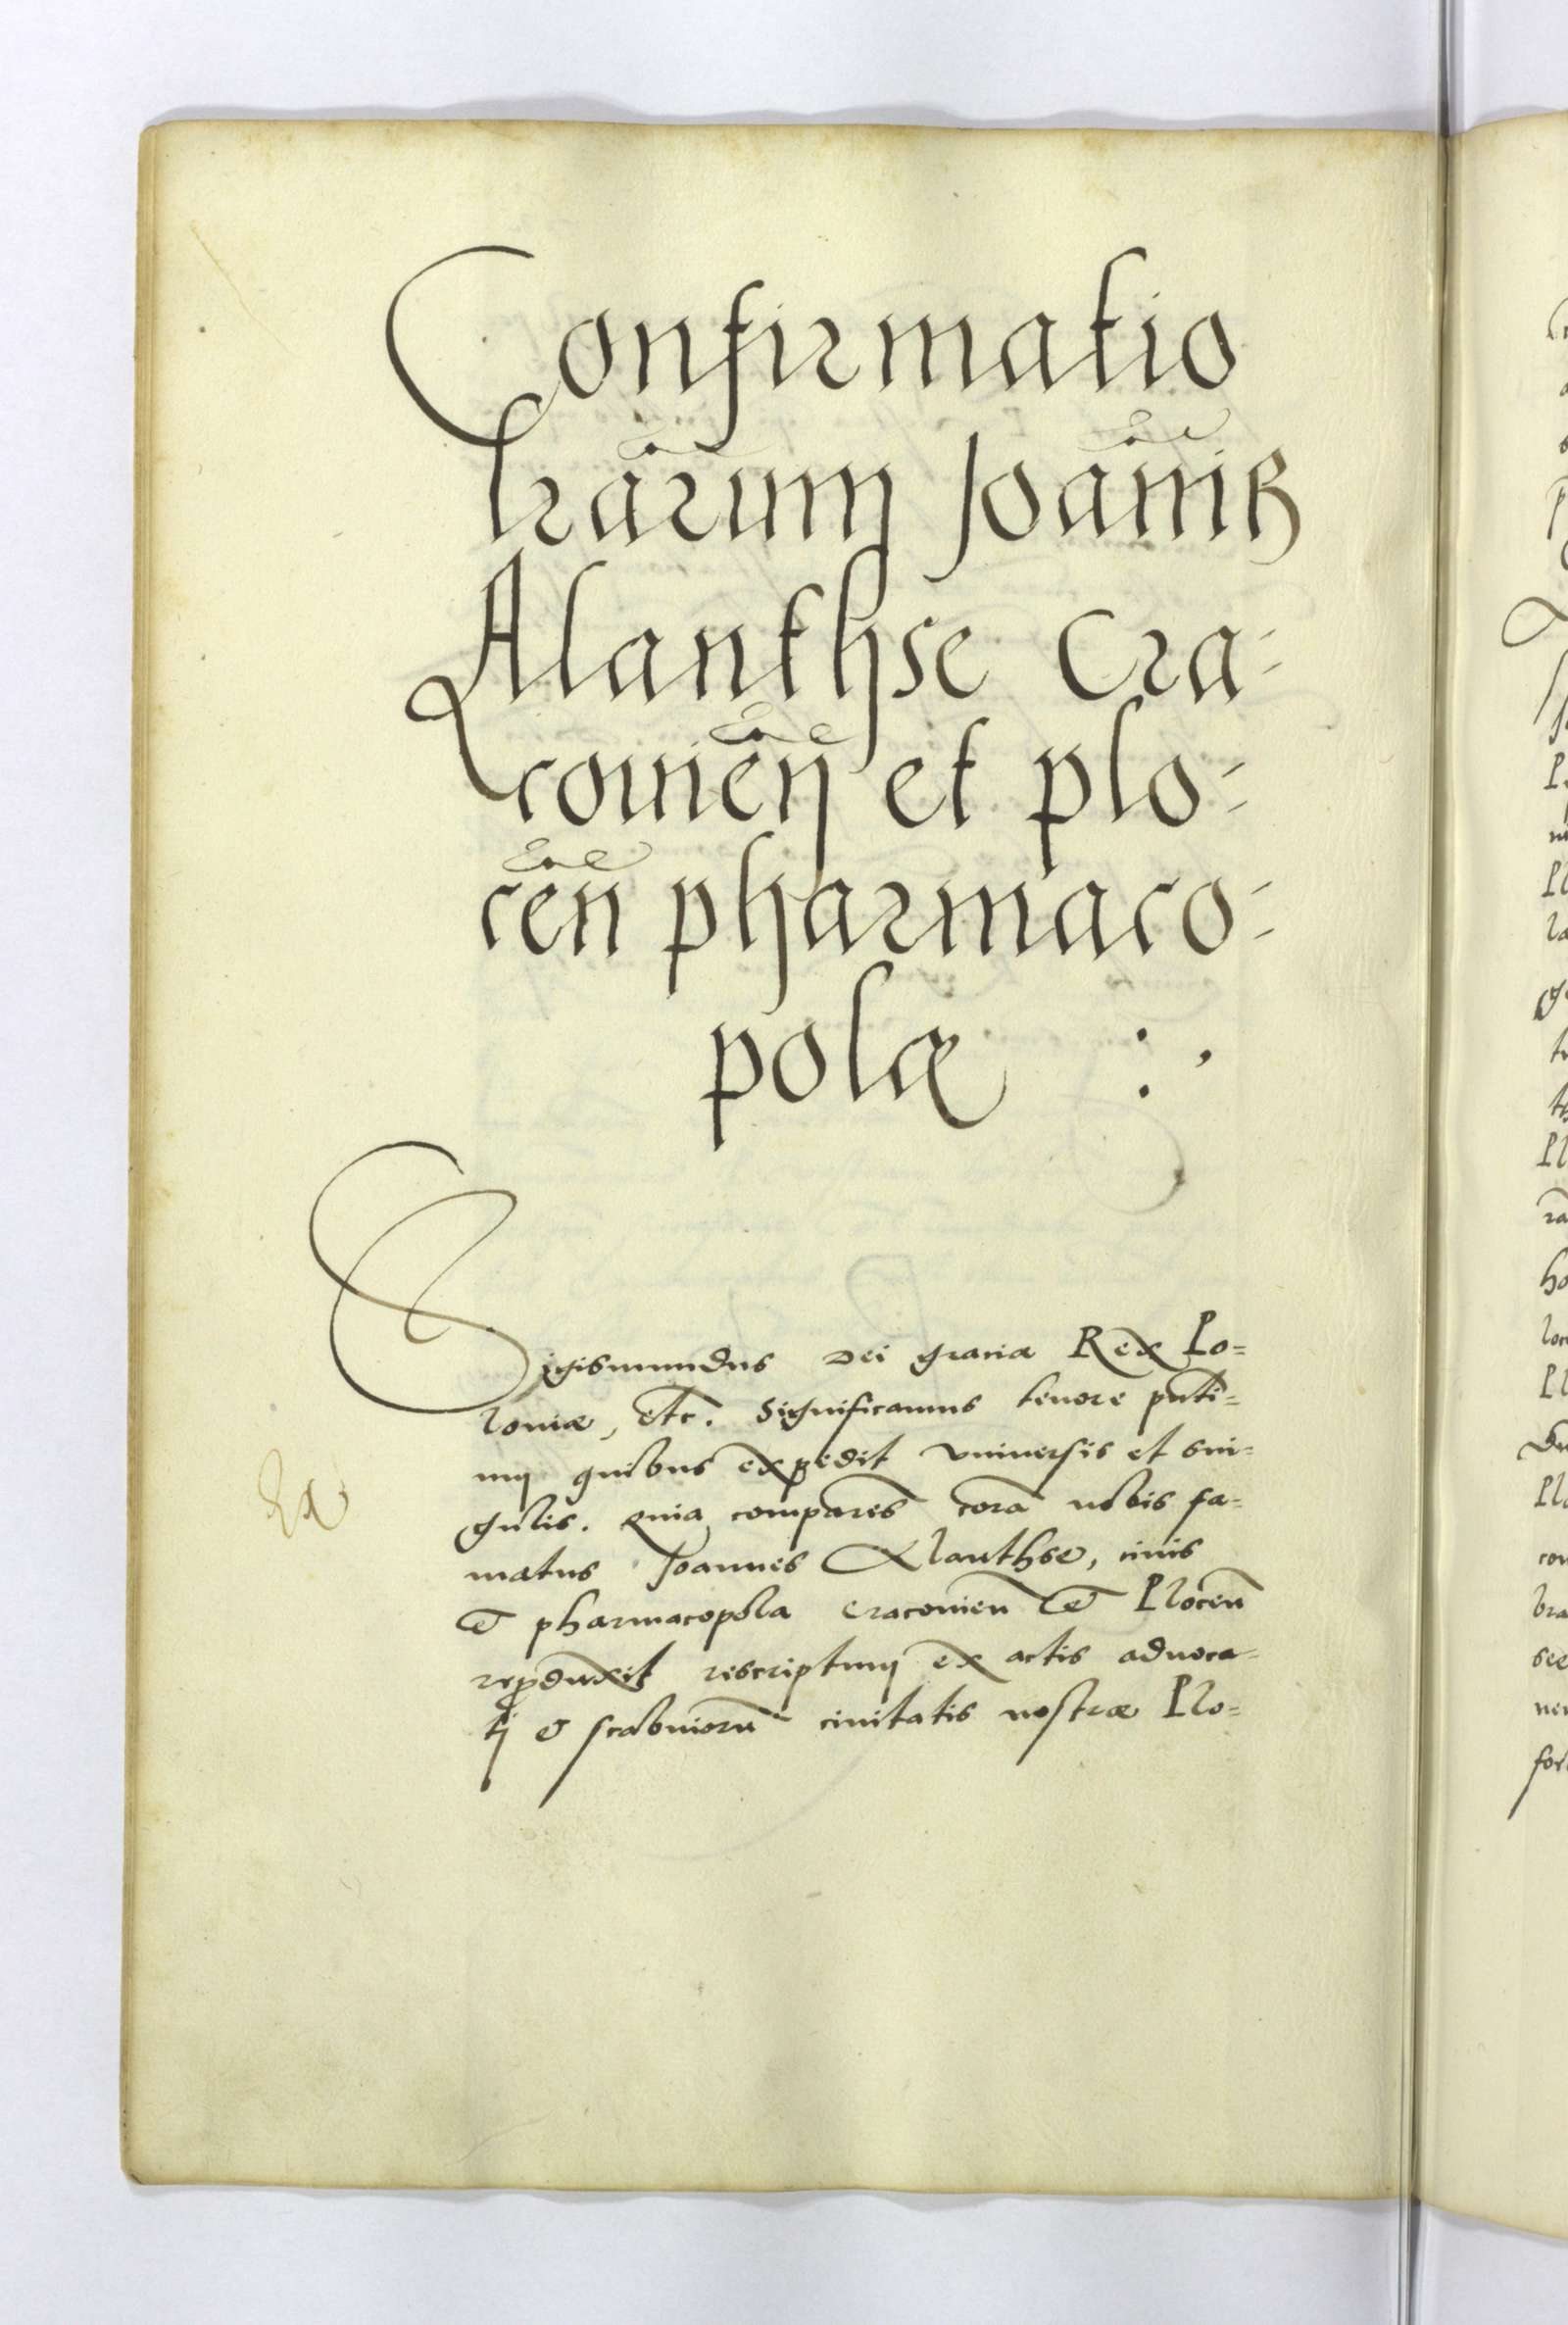 Confirmatio
lrārum Joānnis
Alanthse Cra-
couien̄ et plo-
cen̄ pharmaco-
polæ :,
Sigismundus Dei gratia Rex Po=
loniæ, etc. Significamus tenore pn̄ti=
um quibus expedit vniversis et sin=
gulis. Quia comparen̄s corā nobis fa=
matus Joannes Alanthse, ciuis
et pharmacopola Cracouien̄ et Plocen̄
reproduxit rescriptum ex actis aduoca=
tj et scabinorū ciuitatis nostræ Plo=